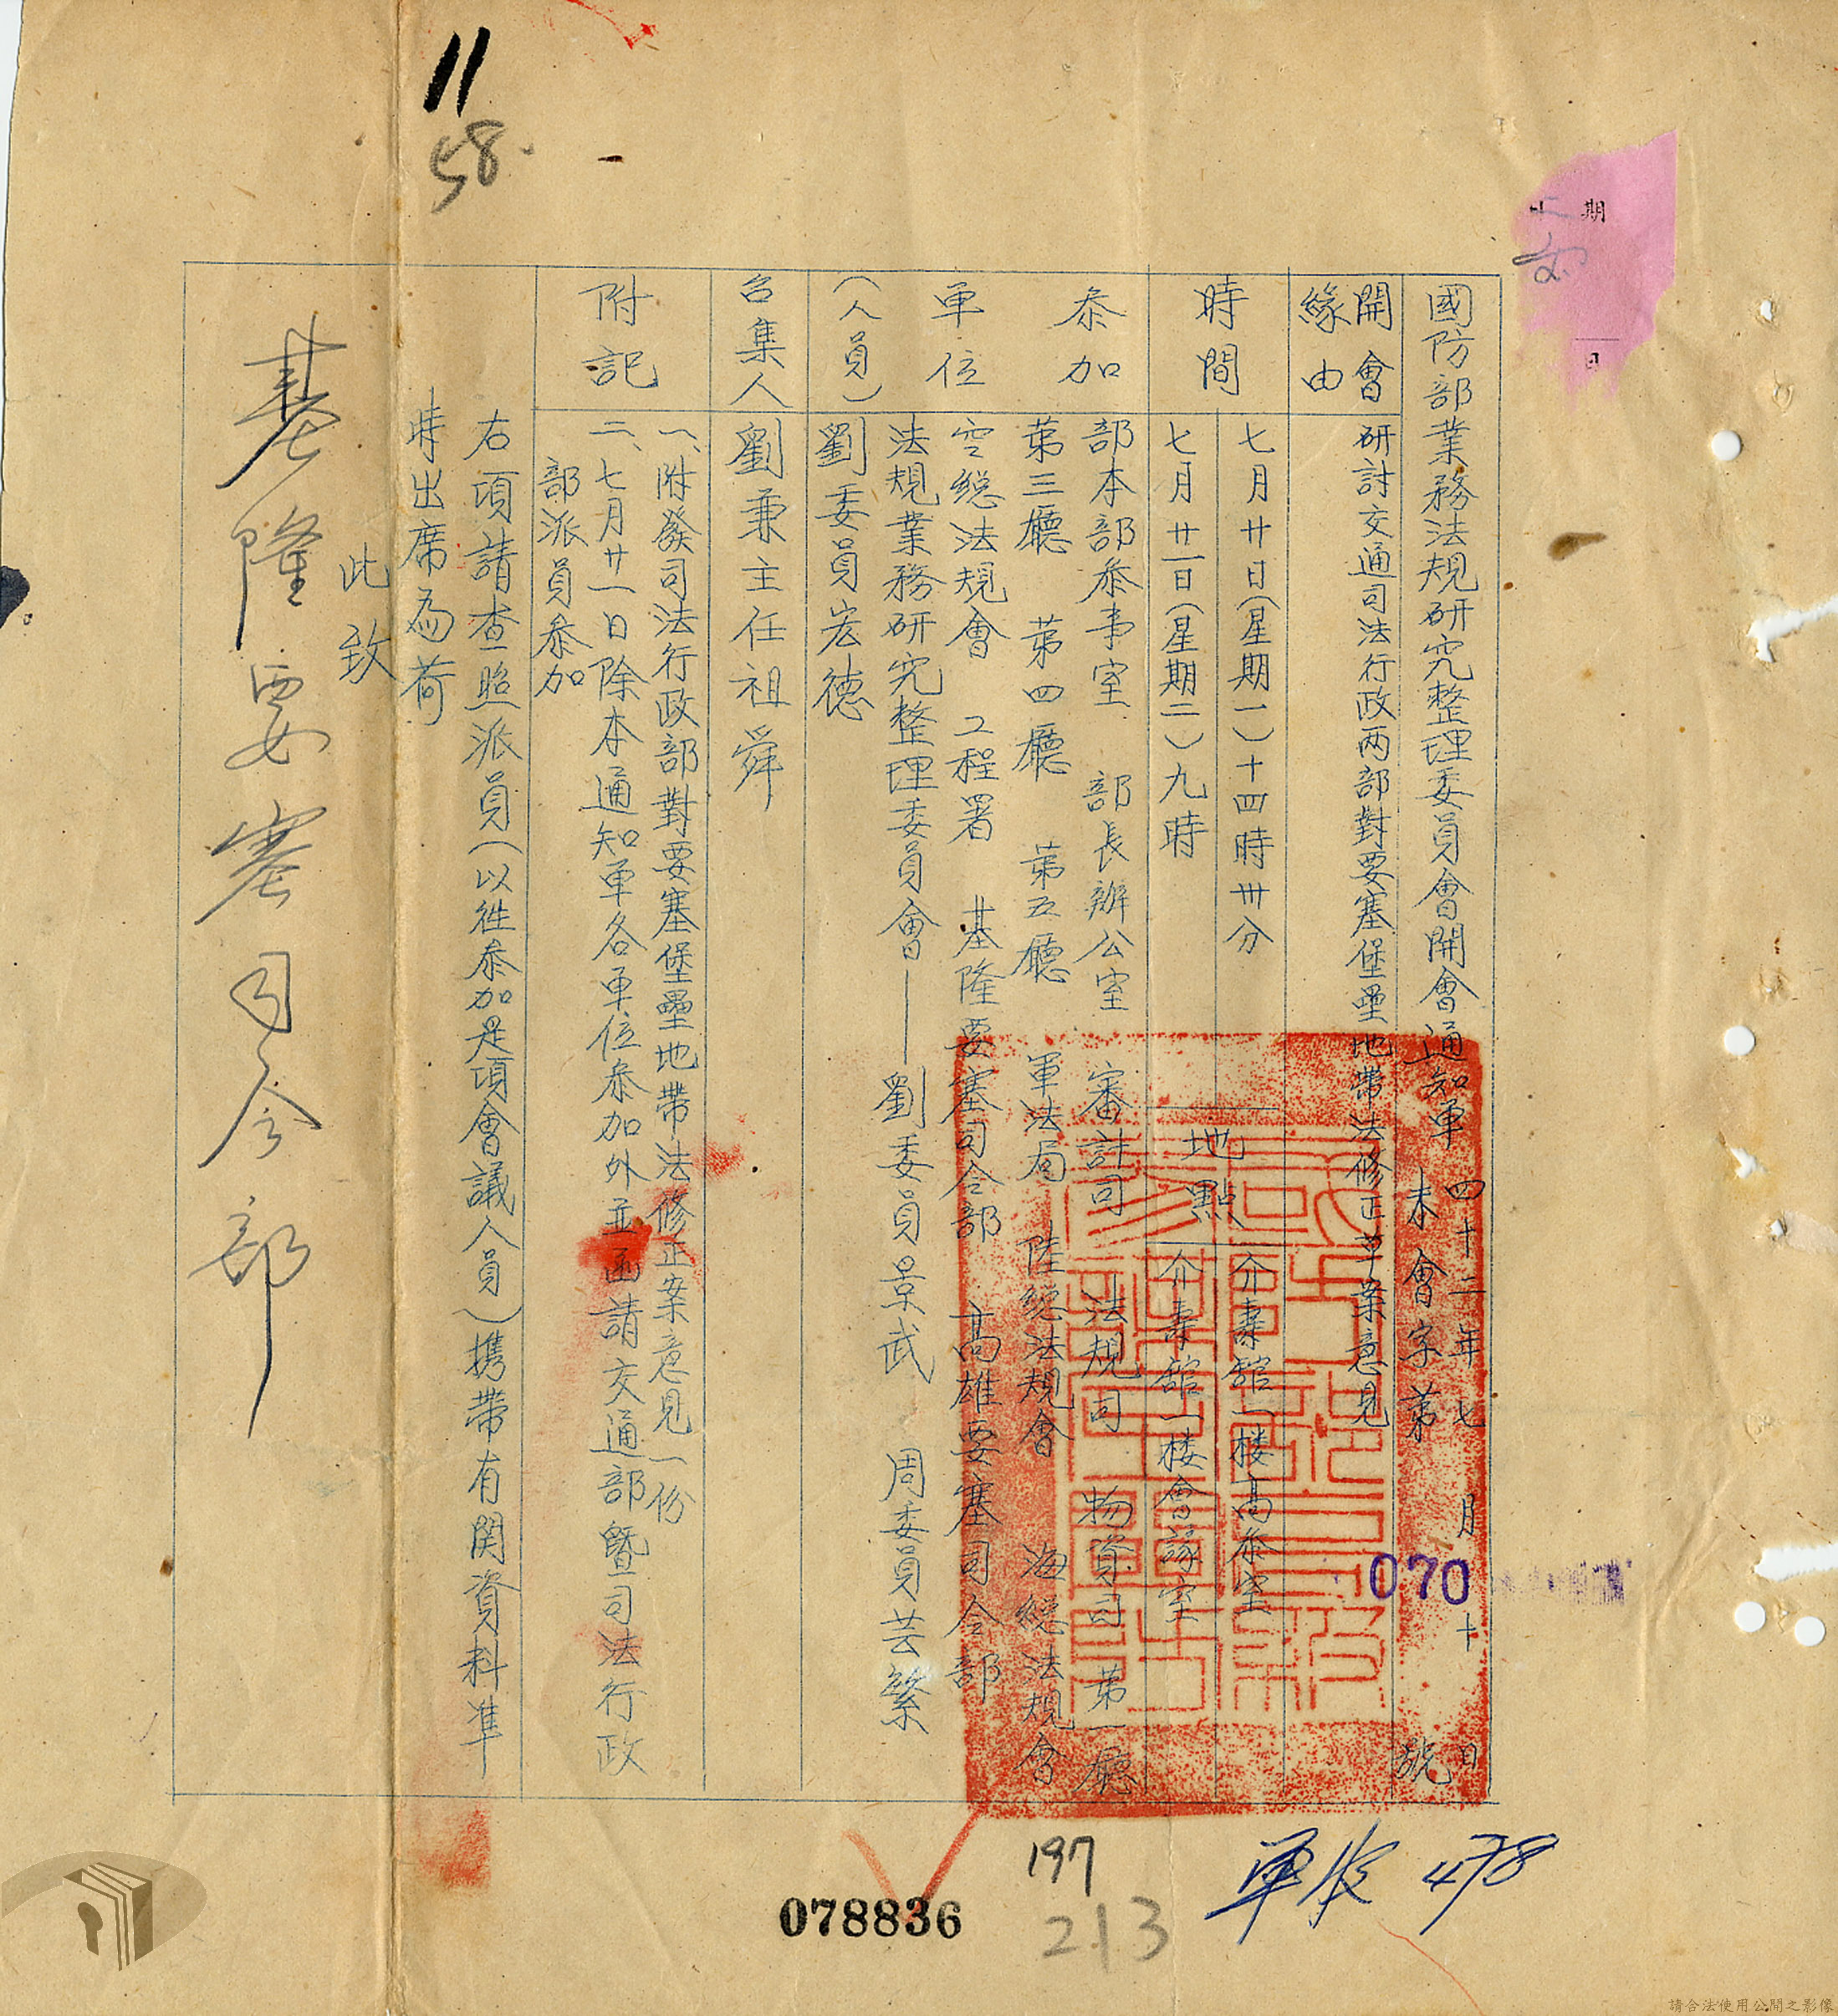 11
58.
期
國防部業務法規研究整理委員會開會通知單
四十二年七月十日
本會字第070號
開會緣由
研討交通司法行政兩部對要塞堡壘地帶法修正草案意見
時間
七月廿日(星期一)十四時卅分
七月廿一日(星期二)九時
地點
介壽舘一楼高參室
介壽舘一楼會議室
參加單位(人員)
部本部參事室 部長辦公室 審計司 法規司 物資司 第一廳
第三廳 第四廳 第五廳 軍法局 陸總法規會 海總法規會
空總法規會 工程署 基隆要塞司令部 高雄要塞司令部
法規業務研究整理委員會——劉委員景武 周委員芸繁
劉委員宏德
召集人
劉兼主任祖舜
附記
一、附發司法行政部對要塞堡壘地帶法修正案意見一份
二、七月廿一日除本通知單各單位參加外並函請交通部暨司法行政
部派員參加
右項請查照派員(以往參加是項會議人員)携帶有関資料準
時出席為荷
此致
基隆要塞司令部
197
213
078836
478
請合法使用公開之影像